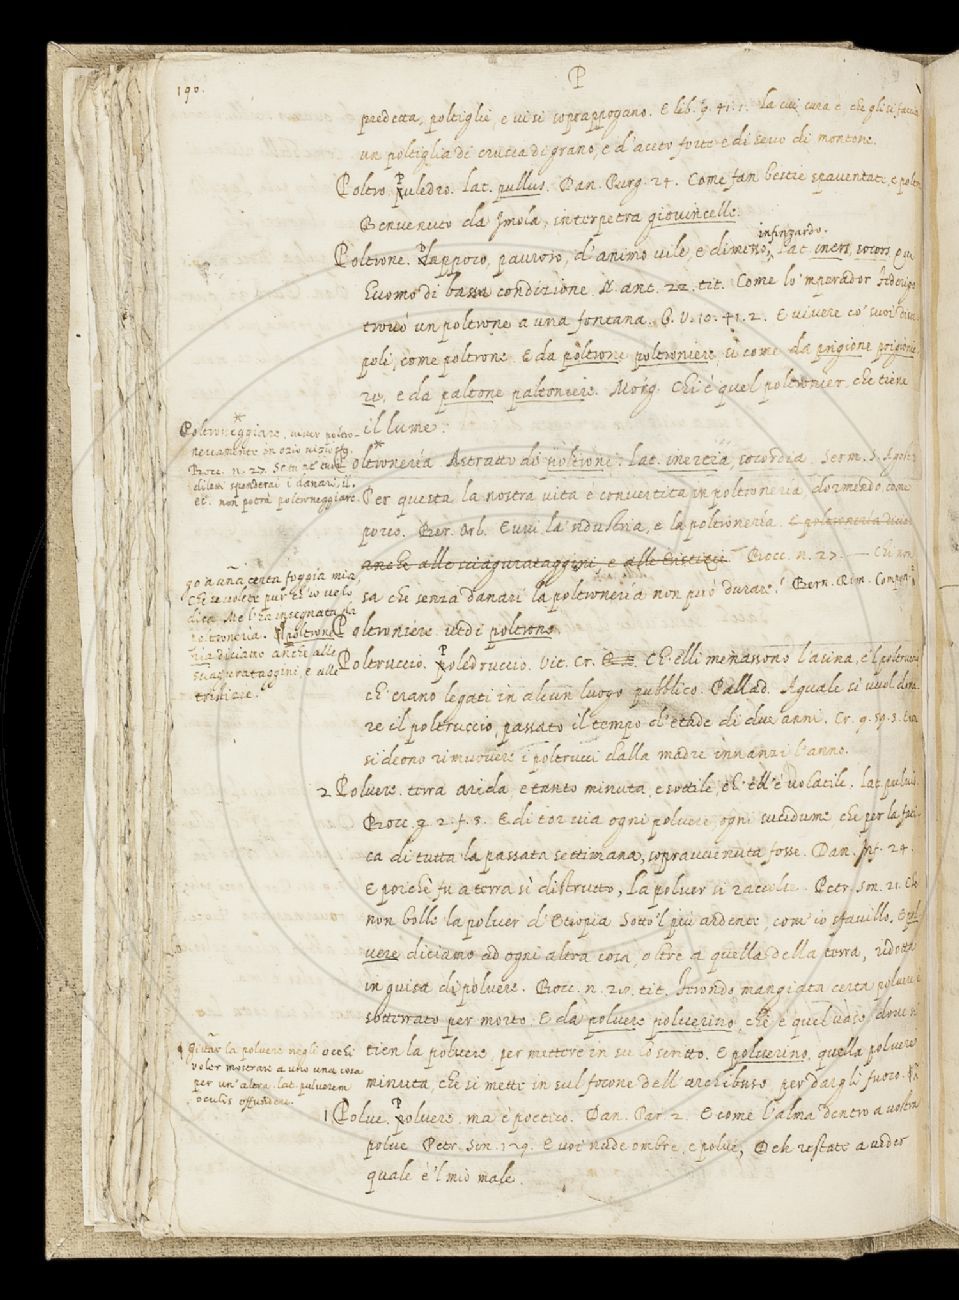 190.
P
predetta, poltiglie, e vi si soprappogano. E lib. 9. 41. 1. La cui cura è, che gli si faccia
un poltiglia di crusca di grano, e d'aceto forte e di sevo di montone.
Poltro. Puledro. lat. pullus. Dan. Purg. 24. Come fan bestie spaventate, e poltre
Benvenuto da Imola, interpetra giovincelle.
infingardo.
Poltrone. Pauroso, d'animo vile, e dimesso, Lat. iners, socors,
E uomo di bassa condizione. N. ant. 22. tit. Come lo 'mperador Federigo
trovò un poltrone a una fontana. G. V. 10. 41. 2. E vivere co' suoi
poli, come poltrone. E da poltrone poltroniere sì come da prigione prigionie
re, e da paltone paltoniere. Morg. Chi è quel poltronier, che tiene
il lume?
Poltroneggiare, viver poltro-
nescamente in ozio
Bocc. n. 27.
spenderai i danari, il
et. non potrà poltroneggiare.
oltronería Astratto di poltrone. lat. inertia, socordia
Per questa la nostra vita è convertita in poltroneria, dormendo, come
porco. Ber. Orl. E uvi la 'ndustria, e la poltronería. E poltronería dicia
anche alle sciagurataggini, e alle tristizie. Bocc. n. 27. — Chi non
sa che senza danari la poltronería non può durare? Bern. Rim.
go a una certa foggia mia,
Che se volete pur ch'io ve lo
dica. Me l'ha insegnata la
poltroneria. Poltrone
ria diciamo anche alle
sciagurataggini, e alle
tristizie.
Poltroniere. vedi poltrone.
Poltruccio. Poledruccio. Vit. Cr. Ch'elli menassono l'asina, e 'l poltruccio
ch'erano legati in alcun luogo pubblico. Pallad. Aguale si vuol doma-
re il poltruccio, passato il tempo d'etade di due anni. Cr. 9. 59. 3.
si deono rimuovere i poltrucci dalla madre innanzi l'anno.
2 Polvere. terra arida, e tanto minuta, e sottile, ch'ell'è volatile. Lat. pulvis.
Bocc. g. 2. f. 3. E di tor via ogni polvere, ogni sucidume, che per la fati-
ca di tutta la passata settimana, sopravvenuta fosse. Dan. Inf. 24.
E poichè fu a terra sì distrutto, La polver si raccolse. Petr. son. 21. Che
non bolle la polver d'Etiopia Sotto 'l più ardente, com'io sfavillo. E pol
vere diciamo ad ogni altra cosa, oltre a quella della terra, ridotta
in guisa di polvere. Bocc. n. 28. tit. Ferondo mangiata certa polvere è
sotterrato per morto. E da polvere polverino, che è quel vaso, dove si
tien la polvere, per mettere in su lo scritto. E polverino, quella polvere
minuta, che si mette in sul focone dell'archibuso, per dargli fuoco.
¶ Gittar la polvere negli occhi
voler mostrare a uno una cosa
per un'altra. lat. pulverem
oculis offundere.
1 Polve. Polvere, ma è poetico. Dan. Par. 2. E come l'alma dentro a vostra
polve. Petr. Son. 129. E voi nude ombre, e polve, Deh restate a veder
quale è 'l mio male.